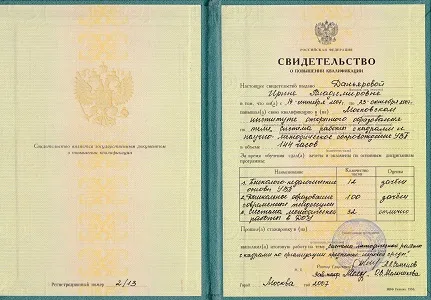 Свидетельство является государственным документом
о повышении квалификации
Регистрационный номер 2/13
РОССИЙСКАЯ ФЕДЕРАЦИЯ
СВИДЕТЕЛЬСТВО
О ПОВЫШЕНИИ КВАЛИФИКАЦИИ
Настоящее свидетельство выдано Даньяровой
Ирине Владимировне
в том, что он(а) с 17 сентября 2007 г. по 25 октября 2007
повышал(а) свою квалификацию в Московском
институте открытого образования
по теме система работы с кадрами и
научно-методическое сопровождение УВП
в объеме 144 часов
За время обучения сдал(а) зачеты и экзамены по основным дисциплинам
программы:
Наименование Количество часов Оценка
1. Психолого-педагогические основы УВП 12 зачтено
2. Дошкольное образование современные тенденции 100 зачтено
3. Система методической работы в ДОУ 32 отлично
Прошел(а) стажировку в (на)
выполнил(а) итоговую работу на тему система методической работы
с кадрами по организации предметно-игровой среды
Город Москва год 2007